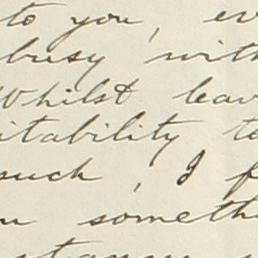 to you, ev
busy with
Whilst leav
itability to
such, I f
somethi